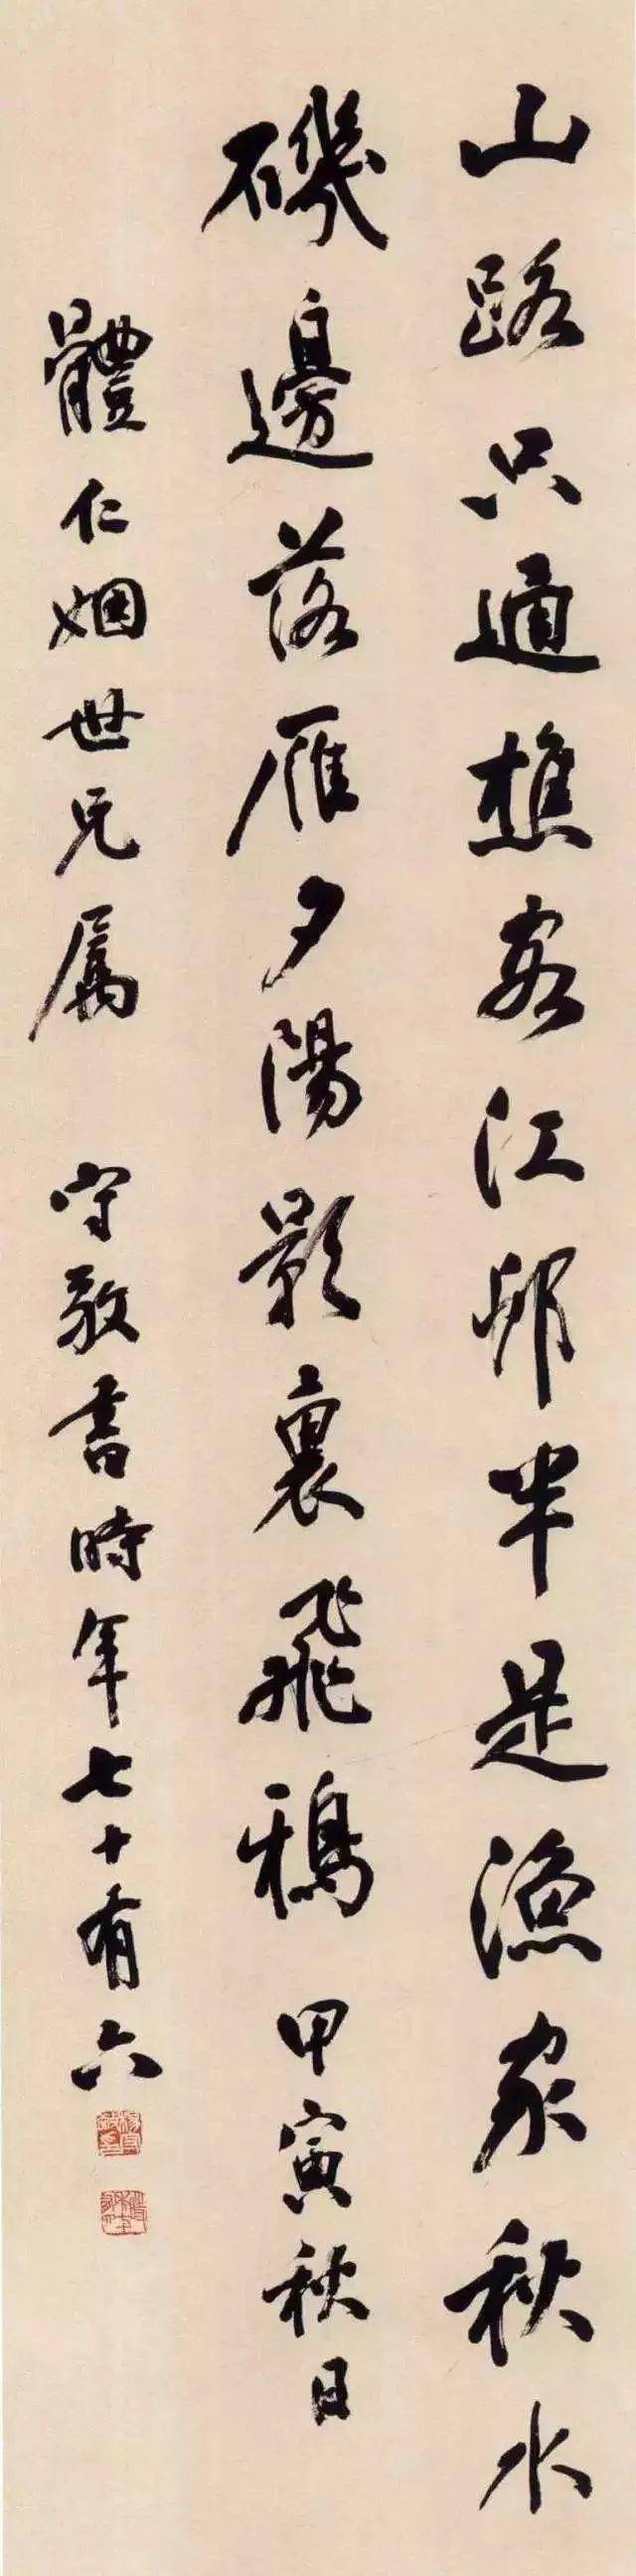 山路只通樵客江邨半是漁家秋水
磯邊落雁夕陽影裏飛鴉 甲寅秋日
體仁姻世兄屬 守敬書時年七十有六